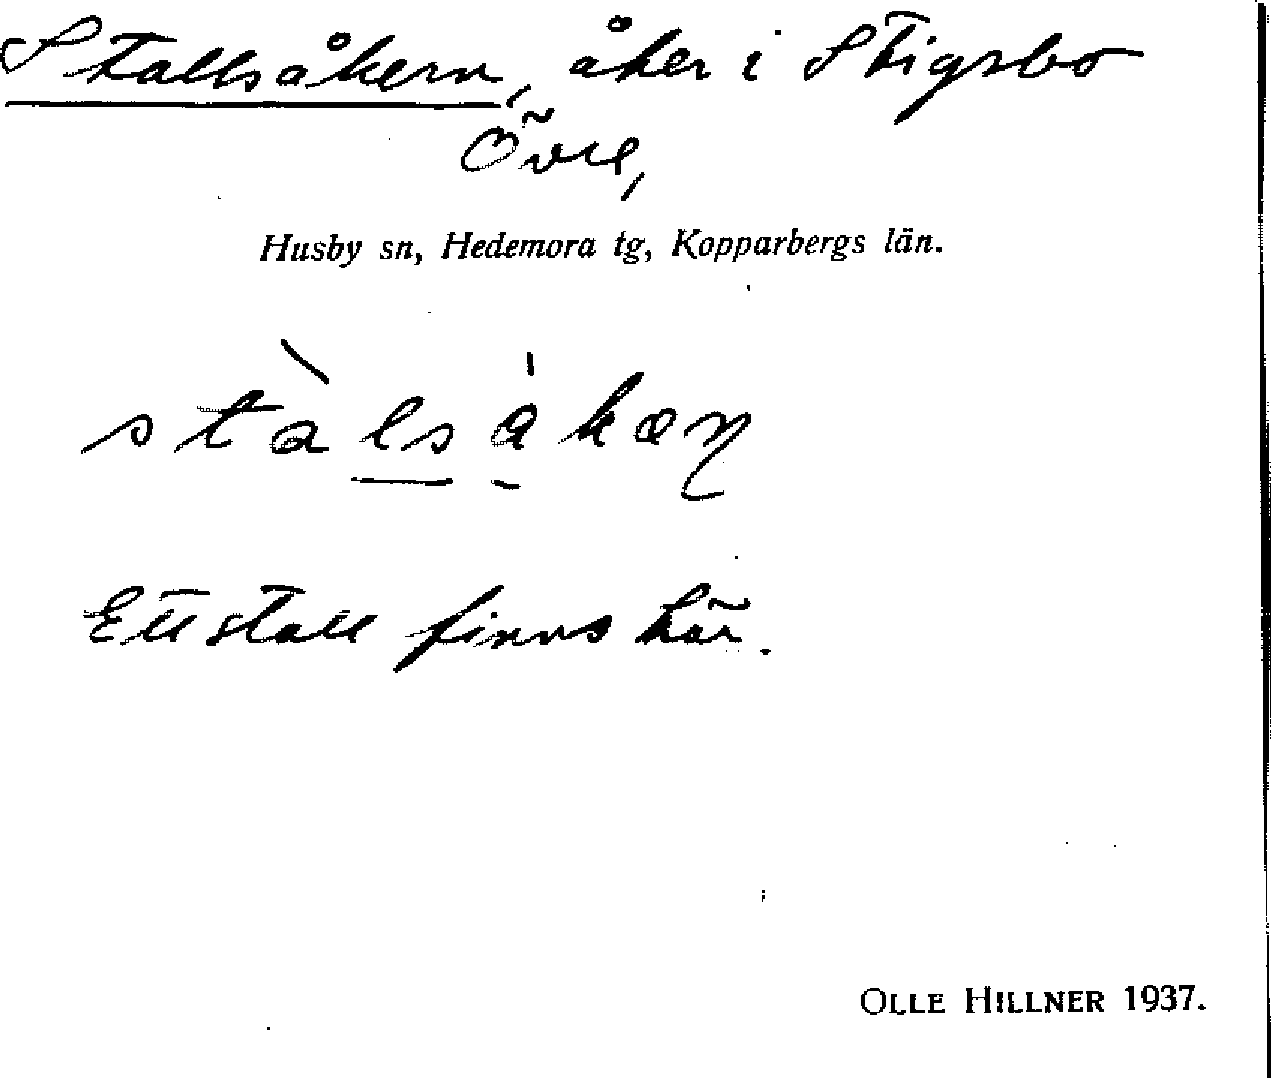 Stallsåkern, åker i Stigsbo
Övre,
Husby sn, Hedemora tg, Kopparbergs län.
stàlsåkæɳ
Ett stall finns här.
OLLE HILLNER 1937.